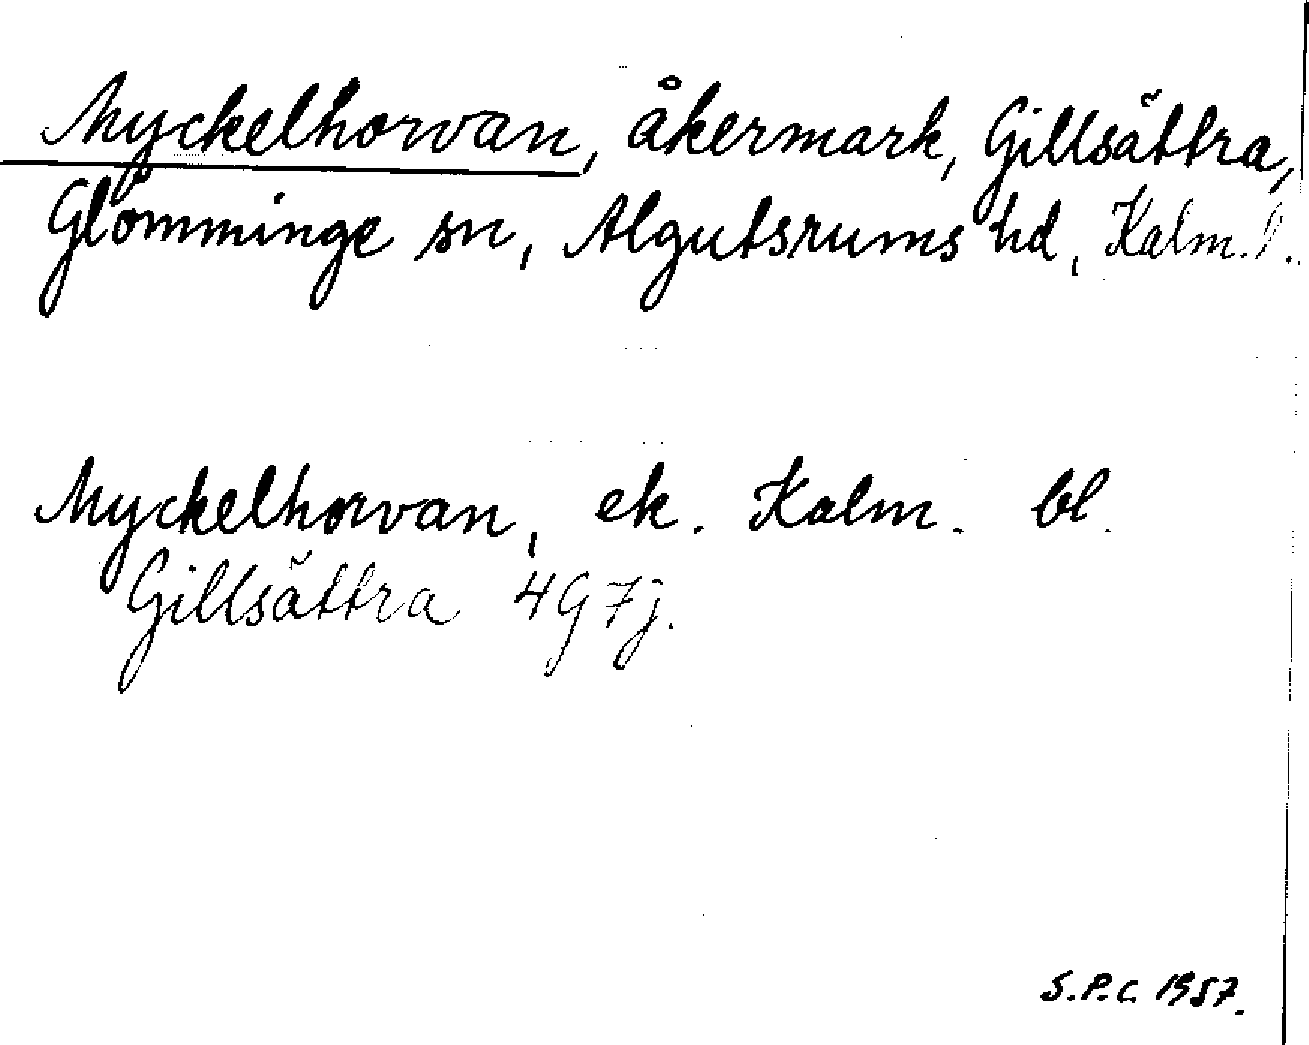 Myckelhorvan, åkermark, Gillsättra,
Glömminge sn, Algutsrums hd, Kalm. l.
Myckelhorvan, ek. Kalm. bl.
Gillsättra 4G 7j.
S.P.C. 1957.